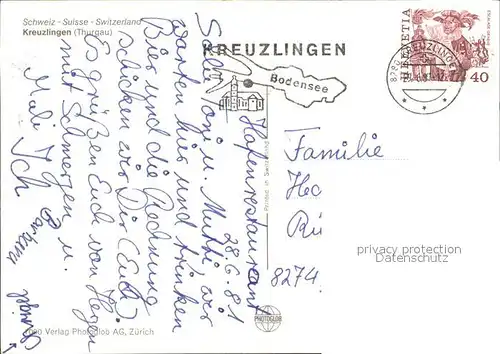 Schweiz - Suisse - Switzerland
Kreuzlingen (Thurgau)
KREUZLINGEN
Bodensee
8280 KREUZLINGEN
HELVETIA
40
Hafenrestaurant
28.6.81
Salü Toni u. Mutti, wir
warten hier und trinken
Bier und die Rechnung
schicken wir Dir (Euch)
Es grüßen Euch von Herzen
mit Schmerzen u.
Mali Ich Barbara
Familie
Hec
Rü
8274
privacy protection
Datenschutz
Verlag Photoglob AG, Zürich
PHOTOGLOB